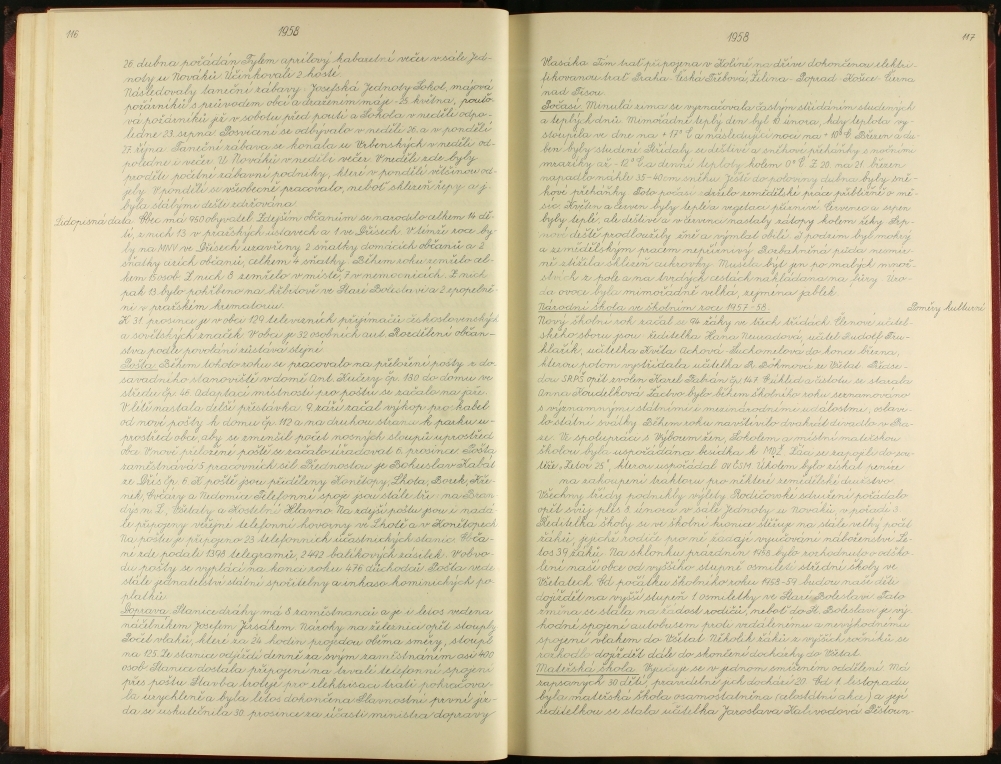 116
1958
26. dubna pořádán Tylem aprílový kabaretní večer v sále Jed-
noty u Nováků. Účinkovali 2 hosté.
Následovaly taneční zábavy: Josefská Jednoty Sokol, májová
požárníků s průvodem obcí a dražením máje 25. května, pouťo-
vá požárníků již v sobotu před poutí a Sokola v neděli odpo-
ledne 23. srpna. Posvícení se odbývalo v neděli 26. a v pondělí
27. října. Taneční zábava se konala u Vrbenských v neděli od-
poledne i večer. U Nováků v neděli večer. V neděli zde byly
prodíti početné zábavní podniky, které v pondělí většinou od-
jely. V pondělí se všeobecně pracovalo, neboť sklizeň řepy a j.
byla stálými dešti zdržována.
Lidopisná data.
Obec má 950 obyvatel. Zdejším občanům se narodilo celkem 14 dě-
tí, z nich 13 v pražských ústavech a 1 ve Dřísech. V témž roce by-
ly na MNV ve Dřísech uzavřeny 2 sňatky domácích občanů a 2
sňatky cizích občanů, celkem 4 sňatky. Během roku zemřelo cel-
kem 15 osob. Z nich 8 zemřelo v místě, 7 v nemocnicích. Z nich
pak 13 bylo pohřbeno na hřbitově ve Staré Boleslavi a 2 zpopelně-
ni v pražském krematoriu.
K 31. prosinci je v obci 129 televizních přijimačů československých
a sovětských značek. V obci je 32 osobních aut. Rozdělení občan-
stva podle povolání zůstává stejné.
Pošta. Během tohoto roku se pracovalo na přeložení pošty z do-
savadního stanoviště v domě Ant. Kučery čp. 130 do domu ve
středu čp. 46. Adaptací místností pro poštu se začalo na jaře.
V létě nastala delší přestávka. 9. září začal výkop pro kabel
od nové pošty k domu čp. 112 a na druhou stranu k parku u-
prostřed obce, aby se zmenšil počet nosných sloupů uprostřed
obce. V nově přeložené poště se začalo úřadovat 6. prosince. Pošta
zaměstnává 5 pracovních sil. Přednostou je Bohuslav Kabát
ze Dřís čp. 6. K poště jsou přiděleny Konětopy, Lhota, Borek, Kře-
nek, Ovčáry a Nedomice. Telefonní spoje jsou stále tři: na Bran-
dýs n. L., Všetaty a Kostelní Hlavno. Na zdejší poštu jsou i nadá-
le připojeny veřejné telefonní hovorny ve Lhotě a v Konětopech.
Na poštu je připojeno 23 telefonních účastnických stanic. Obča-
né zde podali 1398 telegramů, 2492 balíkových zásilek. V obvo-
du pošty se vyplácí na konci roku 476 důchodců. Pošta vede
stále jednatelství státní spořitelny a inkaso kominických po-
platků.
Doprava. Stanice dráhy má 8 zaměstnanců a je i letos vedena
náčelníkem Josefem Jirsákem. Nároky na železnice opět stouply.
Počet vlaků, které za 24 hodin projedou oběma směry, stoupl
na 125. Ze stanice odjíždí denně za svým zaměstnáním asi 400
osob. Stanice dostala připojení na trvalé telefonní spojení
přes poštu. Stavba trolejí pro elektrisaci tratě pokračova-
la urychleně a byla letos dokončena. Slavnostní první jíz-
da se uskutečnila 30. prosince za účasti ministra dopravy
117
1958
Vlasáka. Tím trať připojena v Kolíně na dříve dokončenou elektri-
fikovanou trať Praha - Česká Třebová, Žilina - Poprad - Košice - Čierna
nad Tisou.
Počasí. Minulá zima se vyznačovala častým střídáním studených
a teplých dnů. Mimořádně teplý den byl 10. února, kdy teplota vy-
stoupila ve dne na +17° C a následující noci na +10° C. Březen a du-
ben byly studené. Střídaly se deštivé a sněhové přeháňky s nočními
mrazíky až -12° C a denní teploty kolem 0° C. Z 20. na 21. březen
napadlo náhle 35-40 cm sněhu. Ještě do poloviny dubna byly sně-
hové přeháňky. Toto počasí zdrželo zemědělské práce přibližně o mě-
síc. Květen a červen byly teplé a vegetaci příznivé. Červenec a srpen
byly teplé, ale deštivé a v červenci nastaly zátopy kolem řeky. Srp-
nové deště prodloužily žně a výmlat obilí. I podzim byl mokrý
a zemědělským pracem nepříznivý. Rozbahněná půda nesmír-
ně ztížila sklizeň cukrovky. Musela být jen po malých množ-
stvích z pole a na tvrdých cestách nakládána na fůry. Úro-
da ovoce byla mimořádně velká, zejména jablek.
Poměry kulturní
Národní škola ve školním roce 1957-58.
Nový školní rok začal se 94 žáky ve třech třídách. Členové učitel-
ského sboru jsou: ředitelka Hana Neuradová, učitel Rudolf Tru-
hlařík, učitelka Květa Achová - Suchomelova do konce března,
kterou potom vystřídala učitelka R. Böhmová ze Všetat. Předse-
dou SRPŠ opět zvolen Karel Fabián čp. 147. O úklid a čistotu se starala
Anna Koudelková. Žactvo bylo během školního roku seznamováno
s významnými státními i mezinárodními událostmi, oslavi-
lo státní svátky. Během roku navštívilo dvakrát divadlo v Pra-
ze. Ve spolupráci s Výborem žen, Sokolem a místní mateřskou
školou byla uspořádána besídka k MDŽ. Žáci se zapojili do sou-
těže „Letov 25", kterou uspořádal OV ČSM. Úkolem bylo získat peníze
na zakoupení traktoru pro některé zemědělské družstvo.
Všechny třídy podnikly výlety. Rodičovské sdružení pořádalo
opět svůj ples 8. února v sále Jednoty u Nováků, v pořadí 3.
Ředitelka školy si ve školní kronice stěžuje na stále velký počet
žáků, jejichž rodiče pro ně žádají vyučování náboženství. Le-
tos 39 žáků. Na sklonku prázdnin 1958 bylo rozhodnuto o odško-
lení naší obce od vyššího stupně osmileté střední školy ve
Všetatech. Od počátku školního roku 1958-59 budou naše děti
dojíždět na vyšší stupeň 1. osmiletky ve Staré Boleslavi. Tato
změna se stala na žádost rodičů, neboť do St. Boleslavi je vý-
hodné spojení autobusem proti vzdálenému a nevýhodnému
spojení vlakem do Všetat. Několik žáků z vyšších ročníků se
rozhodlo dojíždět dále do skončení docházky do Všetat.
Mateřská škola. Vyučuje se v jednom smíšeném oddělení. Má
zapsaných 30 dětí, pravidelně jich dochází 20. Od 1. listopadu
byla mateřská škola osamostatněna (celostátní akce) a její
ředitelkou se stala učitelka Jaroslava Kalivodová. Pěstoun-